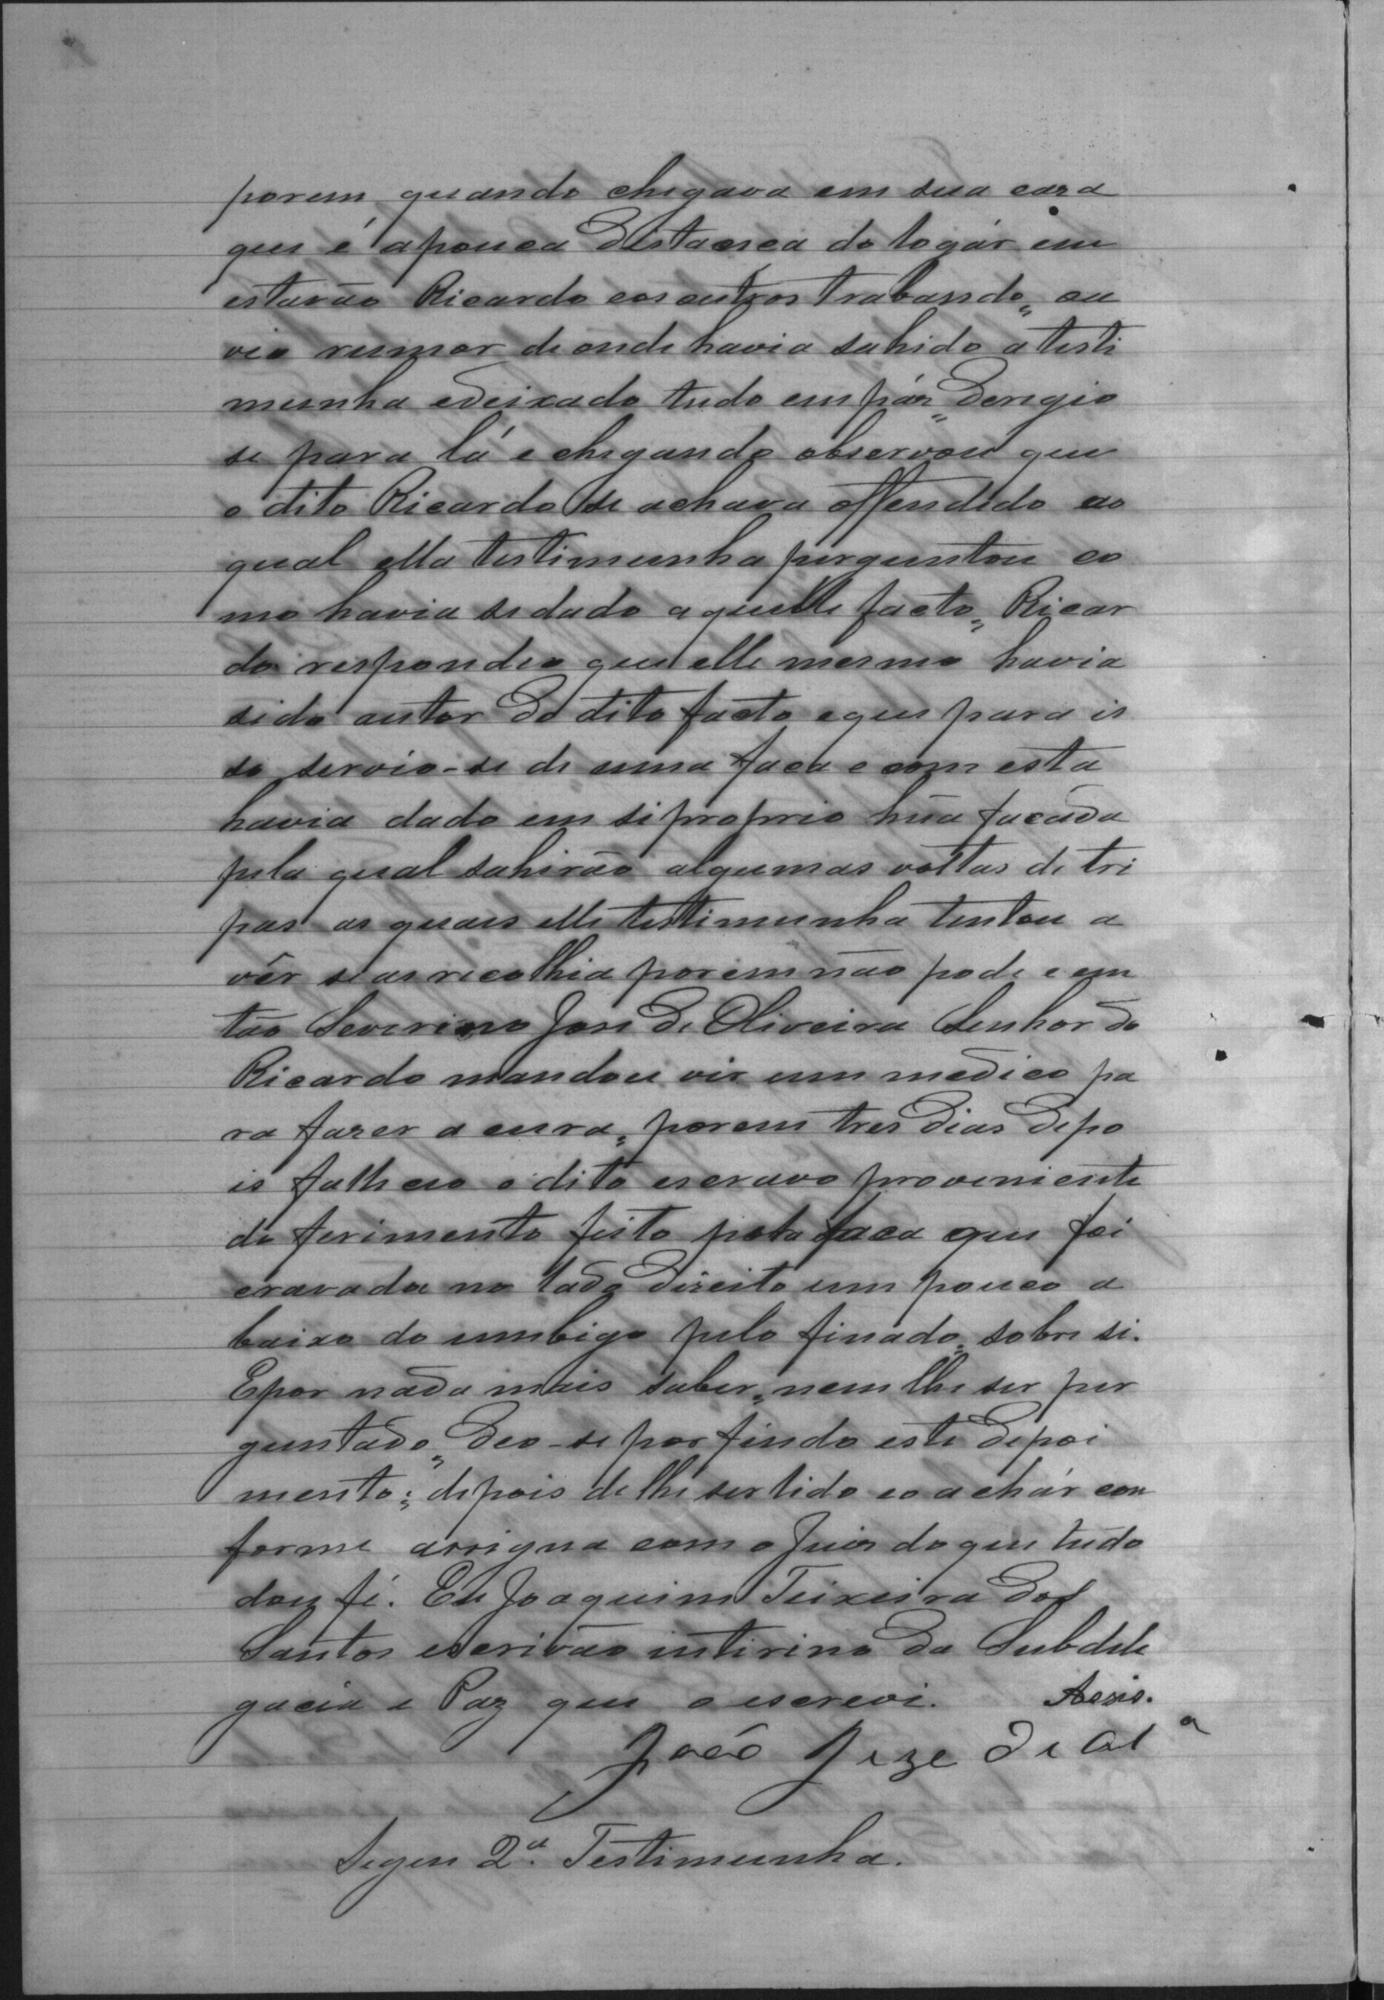 porem quando chegava em sua caza
que é a pouca distancia do logár em
estavão Ricardo e os outros trabando, ou
vio rumor de onde havia sahido a testi
munha e deixado tudo em páz, derigio
se para lá e chegando observou que
o dito Ricardo se achava offendido ao
qual ella testimunha perguntou co
mo havia se dado aquelle facto, Ricar
do respondeo que elle mesmo havia
sido autor do dito facto e que para is
so servio-se de uma faca e com esta
havia dado em si proprio hũa facáda
pela qual sahirão algumas voltas de tri
pas as quais elle testimunha tentou a
vêr se as recolhia porem não pode e em
tão Severino Jose de Oliveira Senhor do
Ricardo mandou vir um medico pa
ra fazer a cura, porem tres dias depo
is falleceo o dito escravo proveniente
do ferimento feito pela faca que foi
cravada no lado direito um pouco a
baixo do umbigo pelo finado, sobre si.
E por nada mais saber, nem lhe ser per
guntado, deo-se por findo este depoi
mento; depois de lhe ser lido e o achár con
forme assigna com o Juiz do que tudo
dou fé. Eu Joaquim Teixeira dos
Santos escrivão intirino da Subdele
gacia e Paz que o escrevi. Assis.
João Jeze de Olª
Segue 2ª. Testimunha.